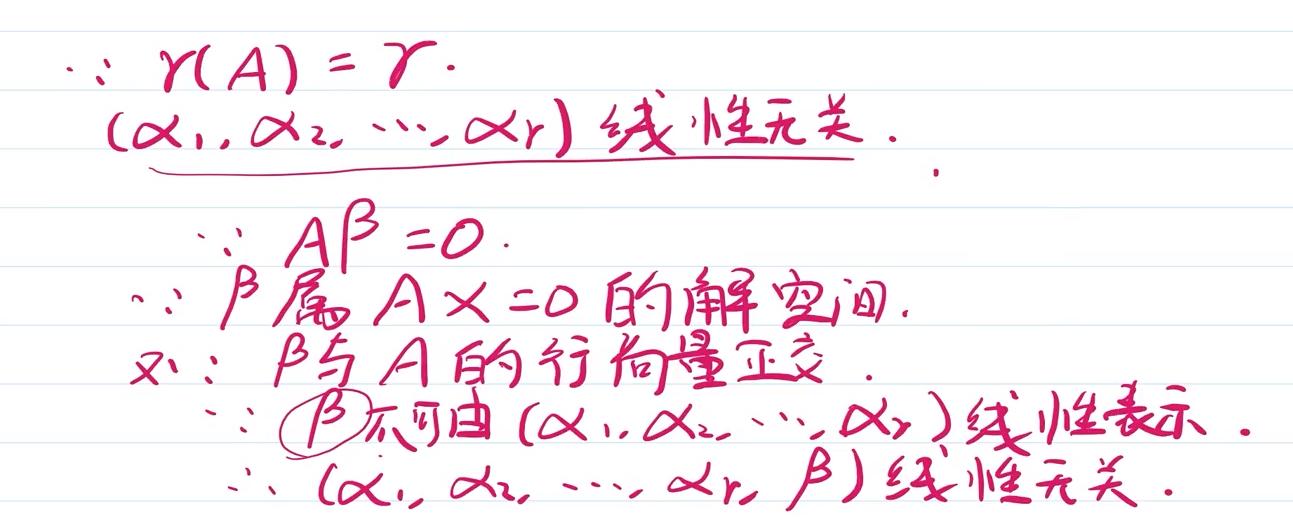 ∵ r(A) = r.
(α₁, α₂, …, αᵣ) 线性无关.
∵ Aβ = 0.
∵ β属 AX=0 的解空间.
又∵ β与A的行向量正交.
∵ β不可由 (α₁, α₂, …, αᵣ) 线性表示.
∴ (α₁, α₂, …, αᵣ, β) 线性无关.